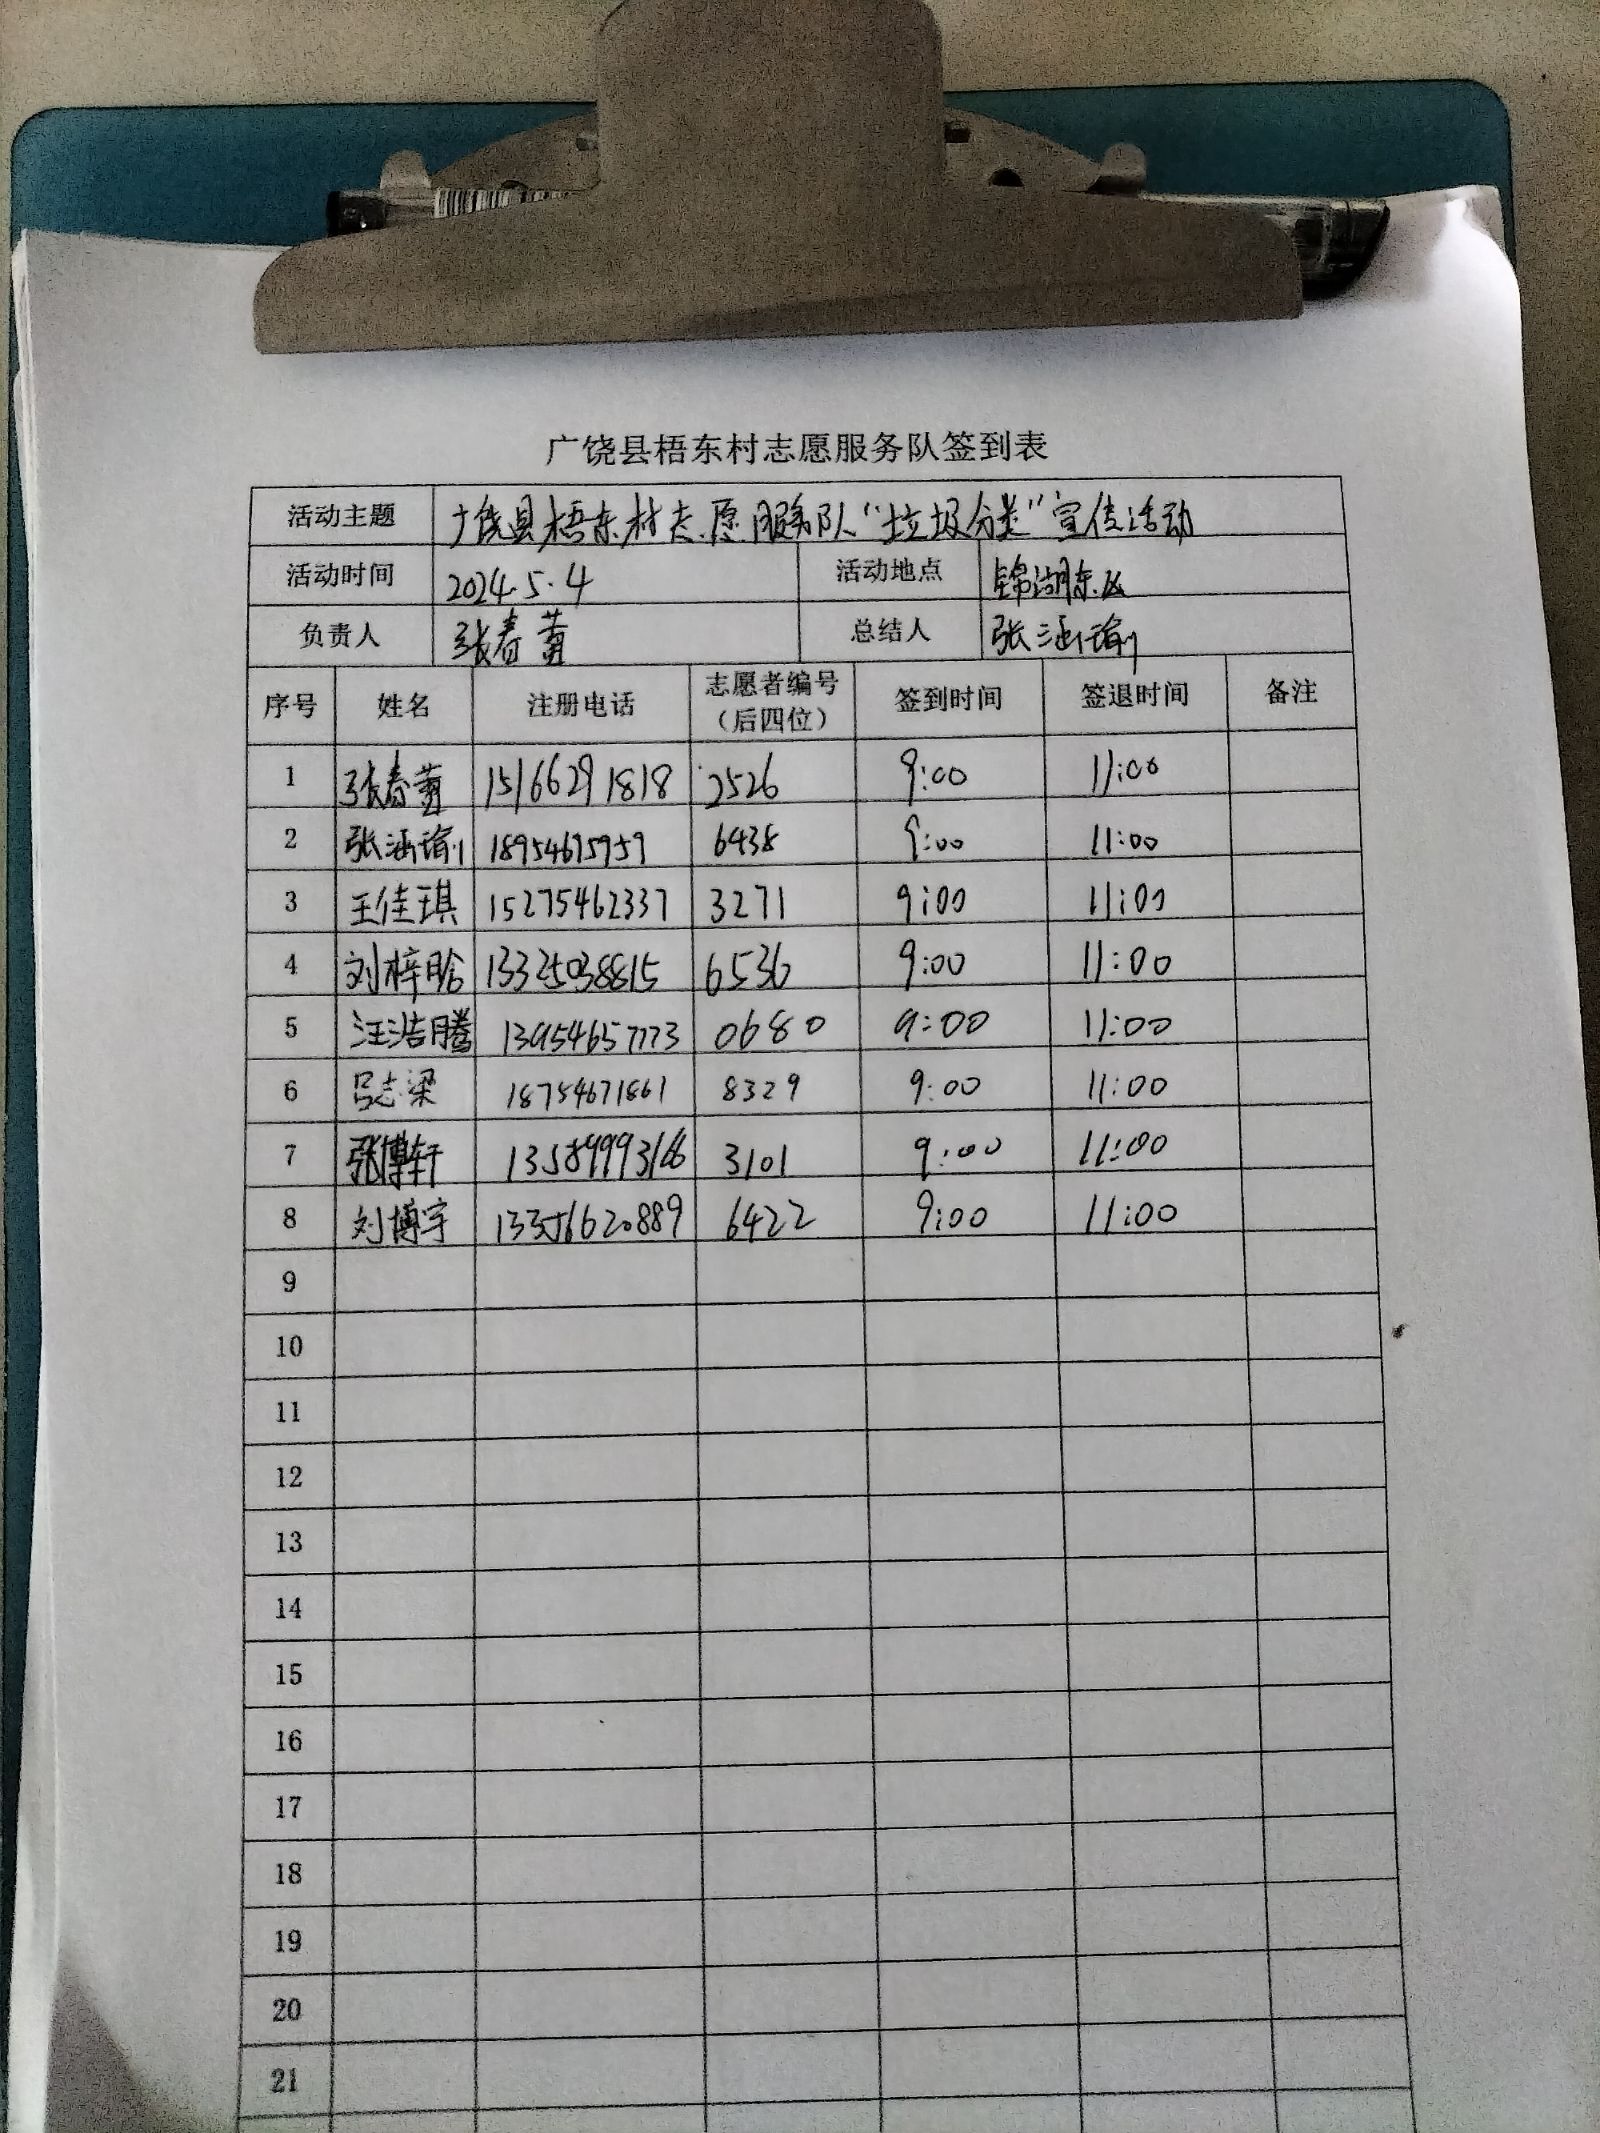 广饶县梧东村志愿服务队签到表
活动主题 广饶县梧东村志愿服务队“垃圾分类”宣传活动
活动时间 2024.5.4 活动地点 锦湖东区
负责人 张春 总结人 张涵瑜
序号 姓名 注册电话 志愿者编号（后四位） 签到时间 签退时间 备注
1 张春 15166291818 2526 9:00 11:00
2 张涵瑜 18954675959 6438 9:00 11:00
3 王佳琪 15275462337 3271 9:00 11:00
4 刘梓晗 13325038815 6536 9:00 11:00
5 汪浩腾 13954657773 0680 9:00 11:00
6 吕志梁 18754671861 8329 9:00 11:00
7 张博轩 13589993166 3101 9:00 11:00
8 刘博宇 13356620889 6422 9:00 11:00
9
10
11
12
13
14
15
16
17
18
19
20
21